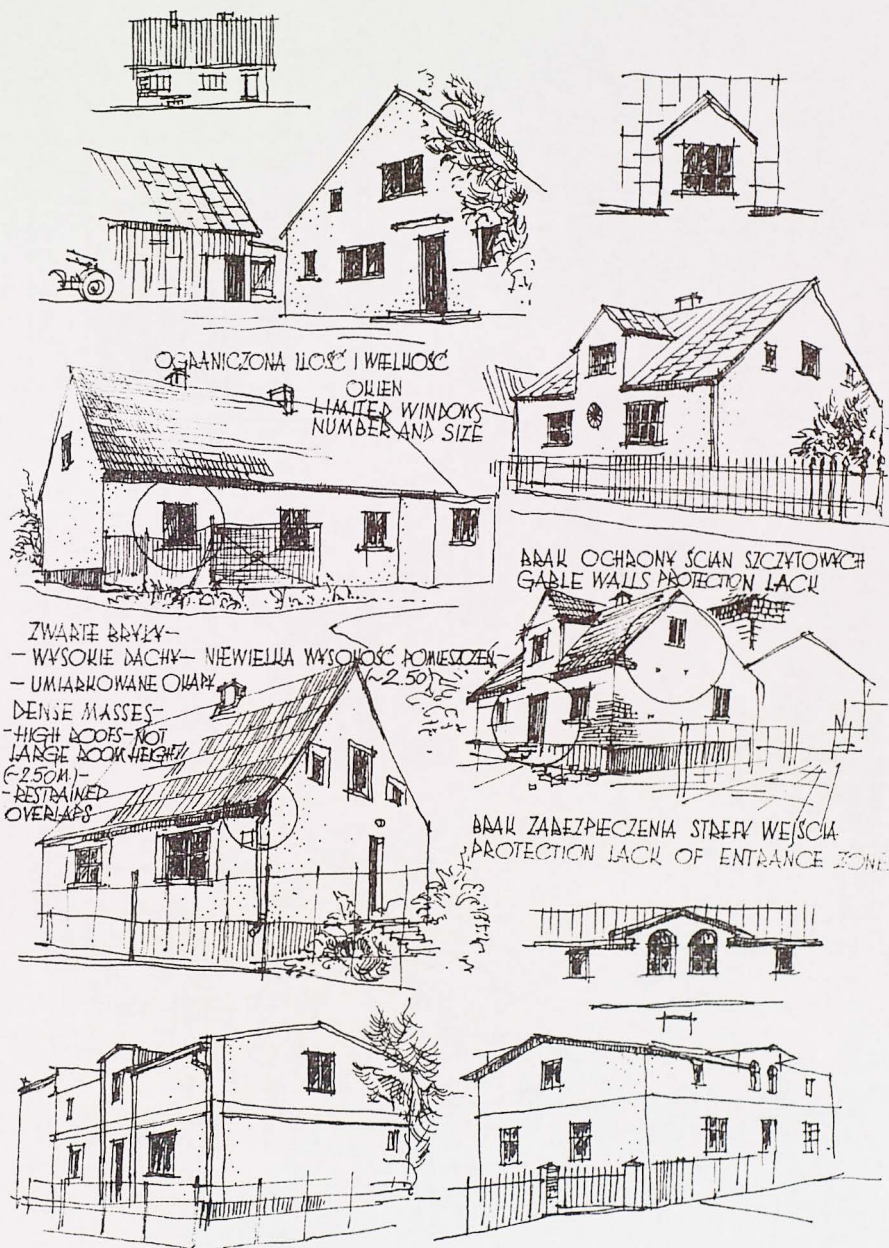 OGRANICZONA ILOŚĆ I WIELKOŚĆ
OKIEN
LIMITED WINDOWS
NUMBER AND SIZE
BRAK OCHRONY ŚCIAN SZCZYTOWYCH
GABLE WALLS PROTECTION LACK
ZWARTE BRYŁY-
- WYSOKIE DACHY- NIEWIELKA WYSOKOŚĆ POMIESZCZEŃ-
(~2.50)
- UMIARKOWANE OKAPY
DENSE MASSES-
-HIGH ROOFS-NOT
LARGE ROOM HEIGHT
(~2.50M)-
- RESTRAINED
OVERLAPS
BRAK ZABEZPIECZENIA STREFY WEJŚCIA
PROTECTION LACK OF ENTRANCE ZONE